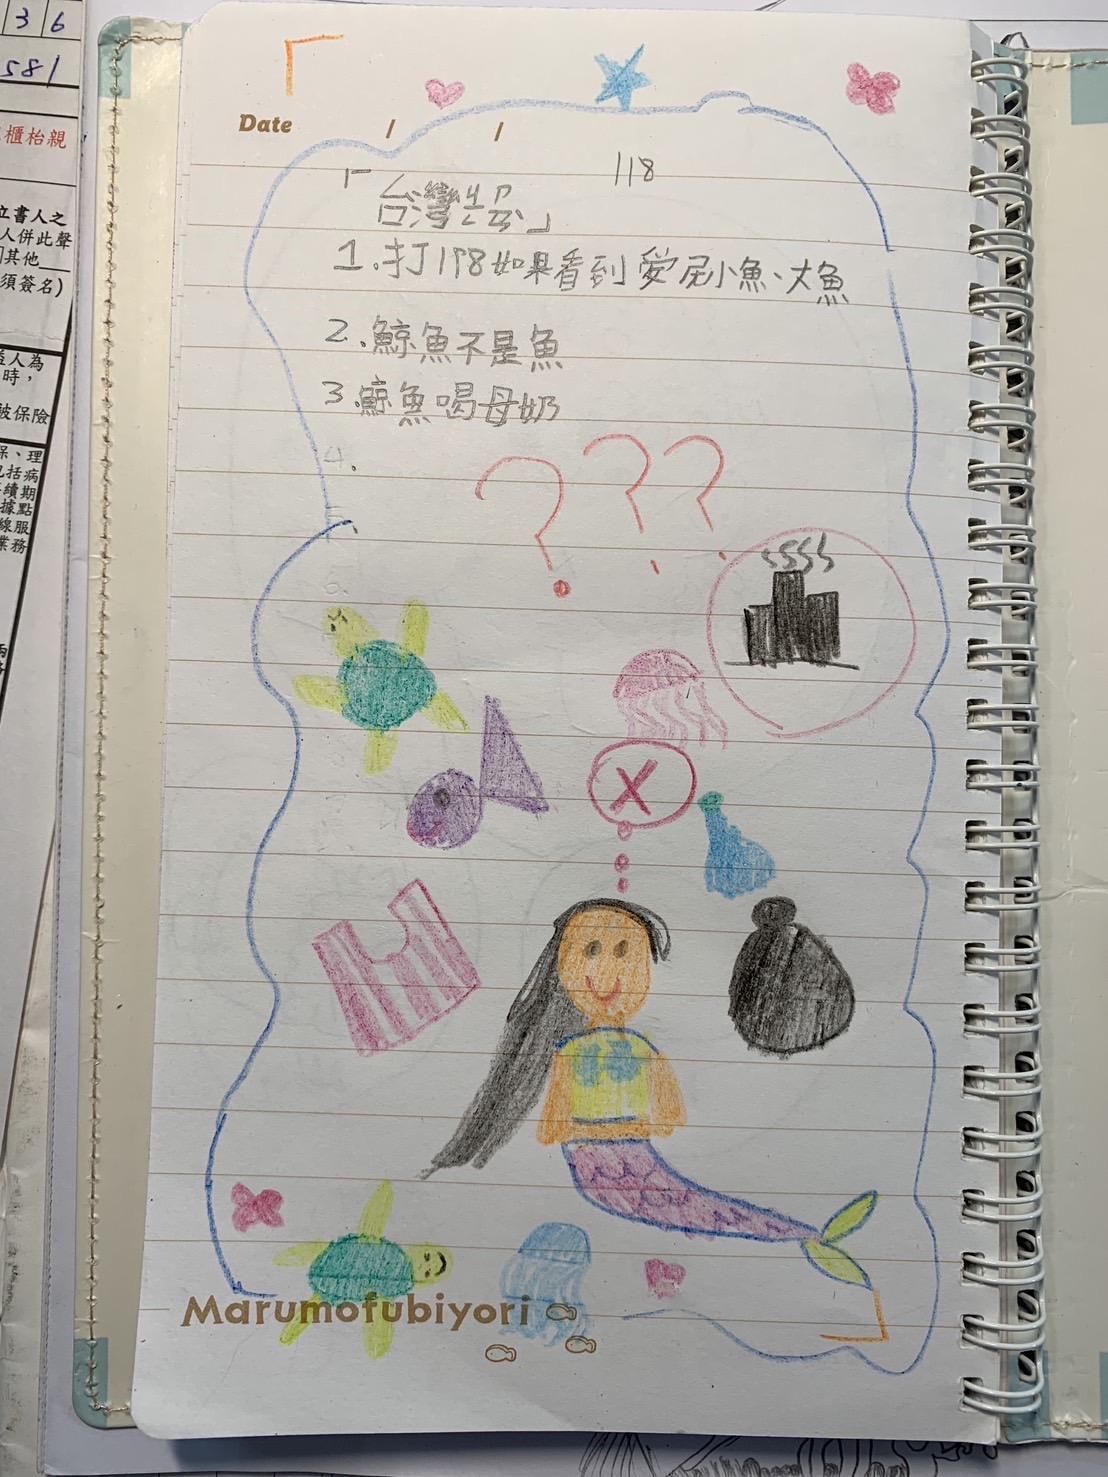 3 6
581
櫃枱親
立書人之
人併此聲
其他
須簽名)
益人為
時，
被保險
保、理
已括病
續期
據點
線服
業務
Date / /
118
「台灣
1.打118如果看到愛尼小魚、大魚
2.鯨魚不是魚
3.鯨魚喝母奶
4.
5.
6.
? ? ?
X
Marumofubiyori